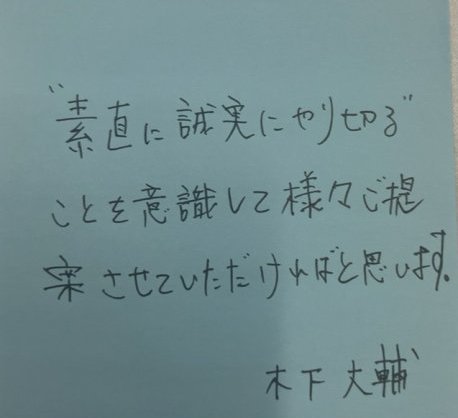 "素直に誠実にやり切る"
ことを意識して様々ご提
案させていただければと思います。
木下大輔